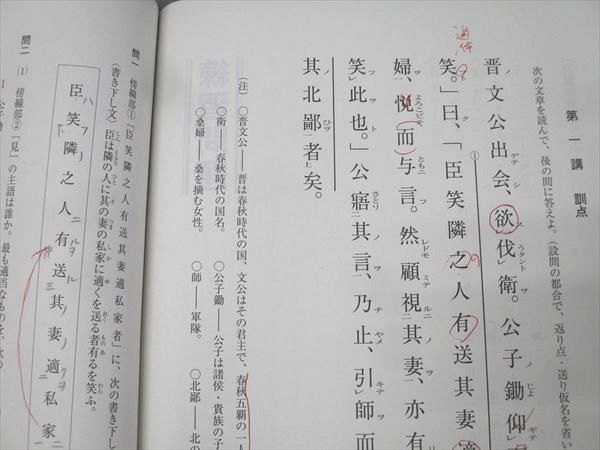 第一講 訓点
次の文章を読んで、後の問に答えよ。（設問の都合で、返り点・送り仮名を省い
晋文公出会、欲伐衛。公子鋤仰
笑。」曰、「臣笑隣之人有送其妻適
婦、悦而与言。然顧視其妻、亦有
笑此也。」公寤其言、乃止、引師而
其北鄙者矣。
（注）〇晋文公――晋は春秋時代の国、文公はその君主で、春秋五覇の一人
〇衛――春秋時代の国名。　〇公子鋤――公子は諸侯・貴族の子
〇桑婦――桑を摘む女性。　〇師――軍隊。　〇北鄙――北の
問一 傍線部①「臣笑隣之人有送其妻適私家者」に、次の書き下し
（書き下し文）臣は隣の人に其の妻の私家に適くを送る者有るを笑ふ。
臣笑隣之人有送其妻適私家
問二 (1) 傍線部②「見」の主語は誰か。最も適当なものを、次の